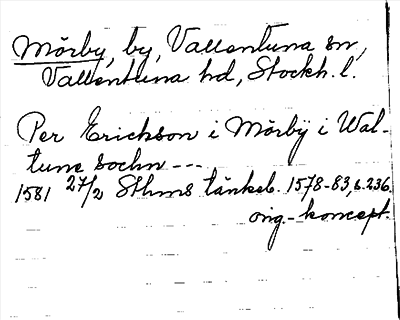 Mörby, by, Vallentuna sn,
Vallentuna hd, Stockh. l.
Per Erickson i Mörbÿ i Wal-
tune sochn ---
1581 27/2 Sthms tänkeb. 1578-83, s. 236.
orig.-koncept.